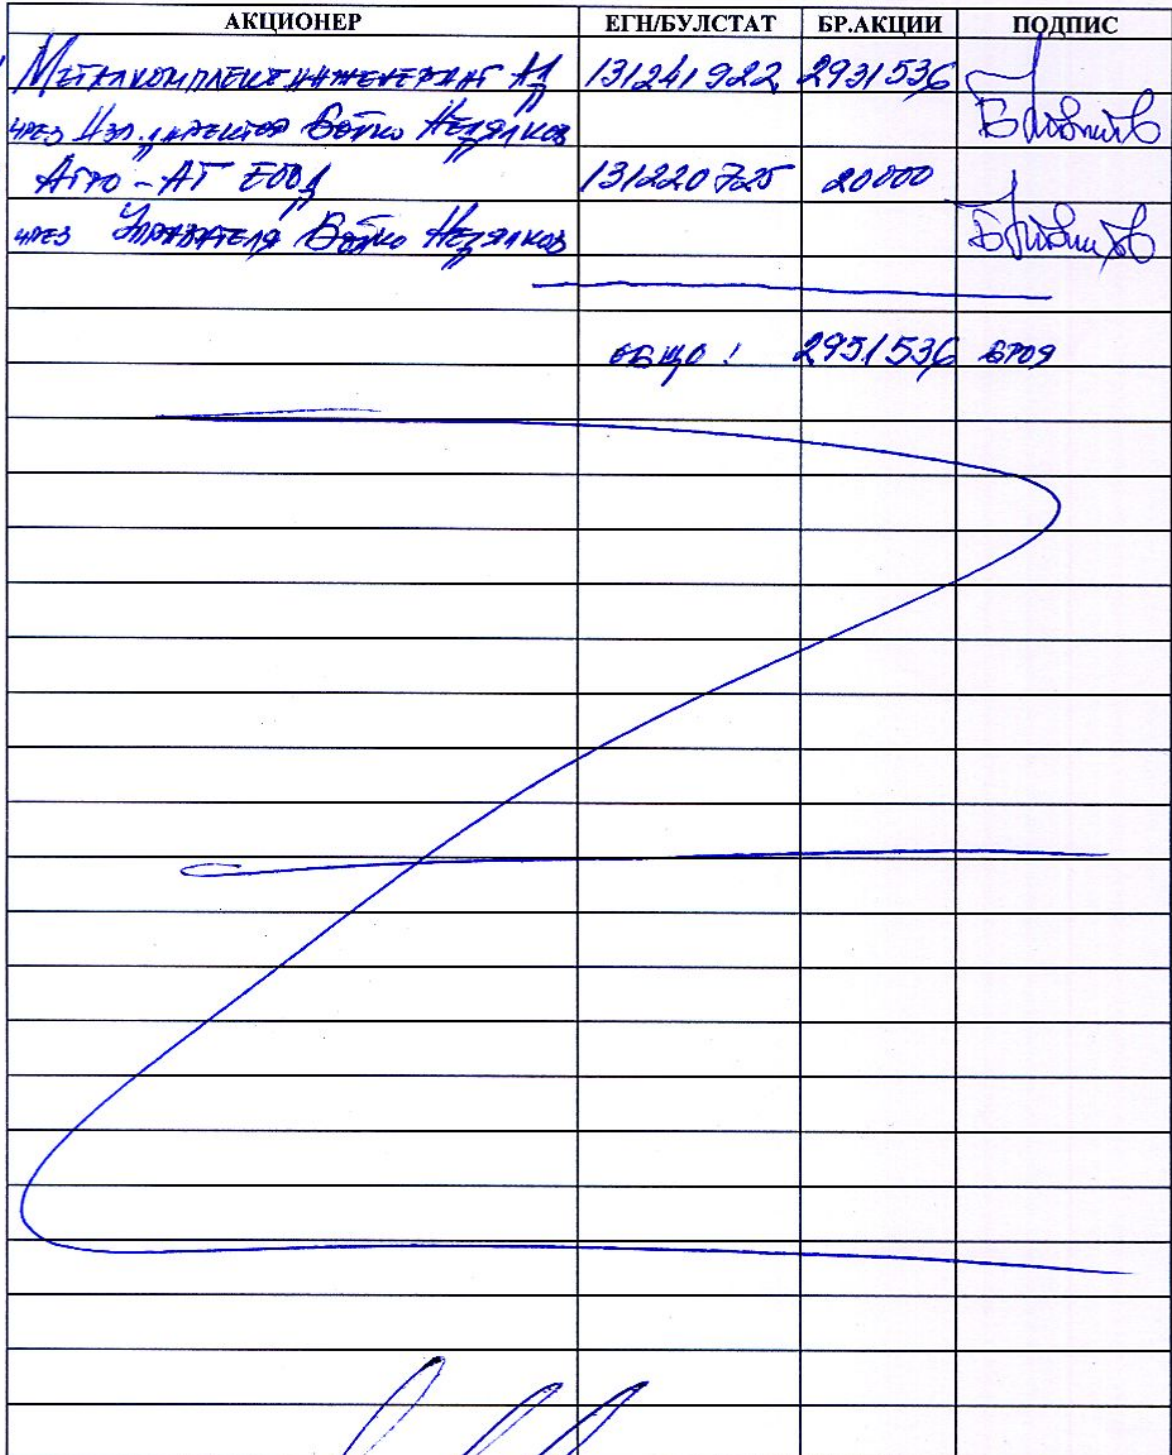 АКЦИОНЕР ЕГН/БУЛСТАТ БР.АКЦИИ ПОДПИС
МЕТАЛКОМПЛЕКТ ИНЖЕНЕРИНГ АД 131241922 2931536
ЧРЕЗ ИЗП. ДИРЕКТОР БОЙКО НЕДЯЛКОВ
АГРО-АТ ЕООД 131220725 20000
ЧРЕЗ УПРАВИТЕЛЯ БОЙКО НЕДЯЛКОВ
ОБЩО: 2951536 БРОЯ